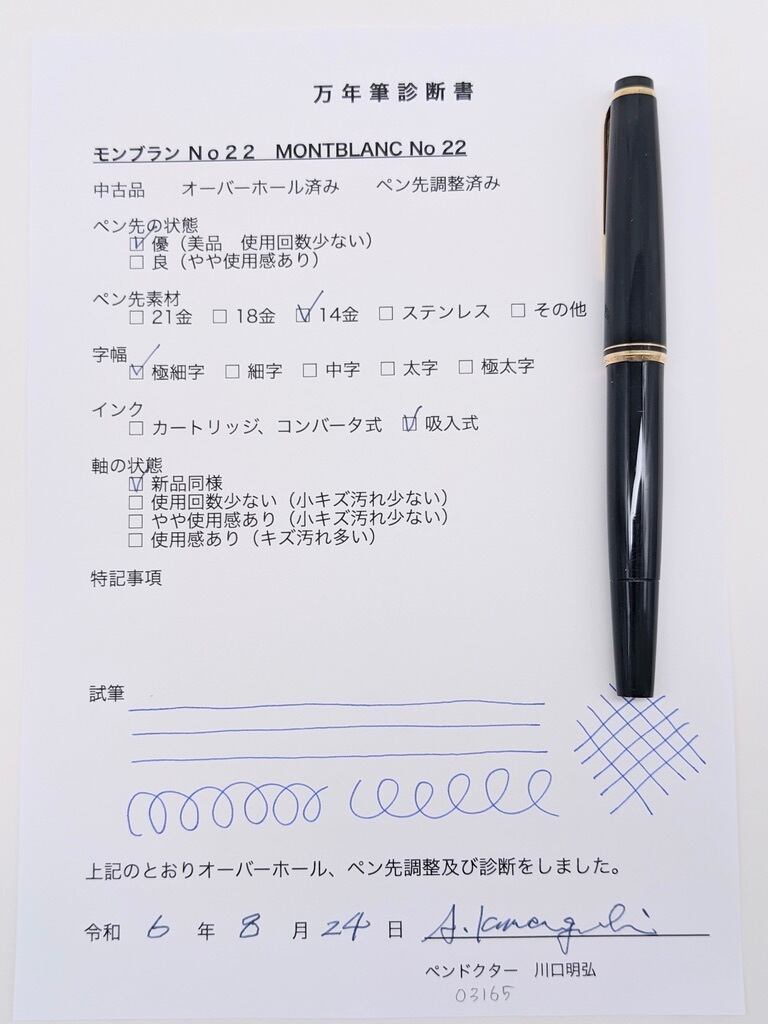 万年筆診断書
モンブラン No22　MONTBLANC No 22
中古品　オーバーホール済み　ペン先調整済み
ペン先の状態
☑ 優（美品　使用回数少ない）
□ 良（やや使用感あり）
ペン先素材
□ 21金 □ 18金 ☑ 14金 □ ステンレス □ その他
字幅
☑ 極細字 □ 細字 □ 中字 □ 太字 □ 極太字
インク
□ カートリッジ、コンバータ式 ☑ 吸入式
軸の状態
☑ 新品同様
□ 使用回数少ない（小キズ汚れ少ない）
□ やや使用感あり（小キズ汚れ少ない）
□ 使用感あり（キズ汚れ多い）
特記事項
試筆
上記のとおりオーバーホール、ペン先調整及び診断をしました。
令和 6 年 8 月 24 日 A. Kawaguchi
ペンドクター　川口明弘
03165